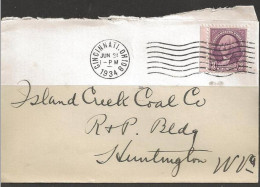 CINCINNATI, OHIO
JUN
1-PM
1934
Island Creek Coal Co
R & P. Bldg
Huntington W Va